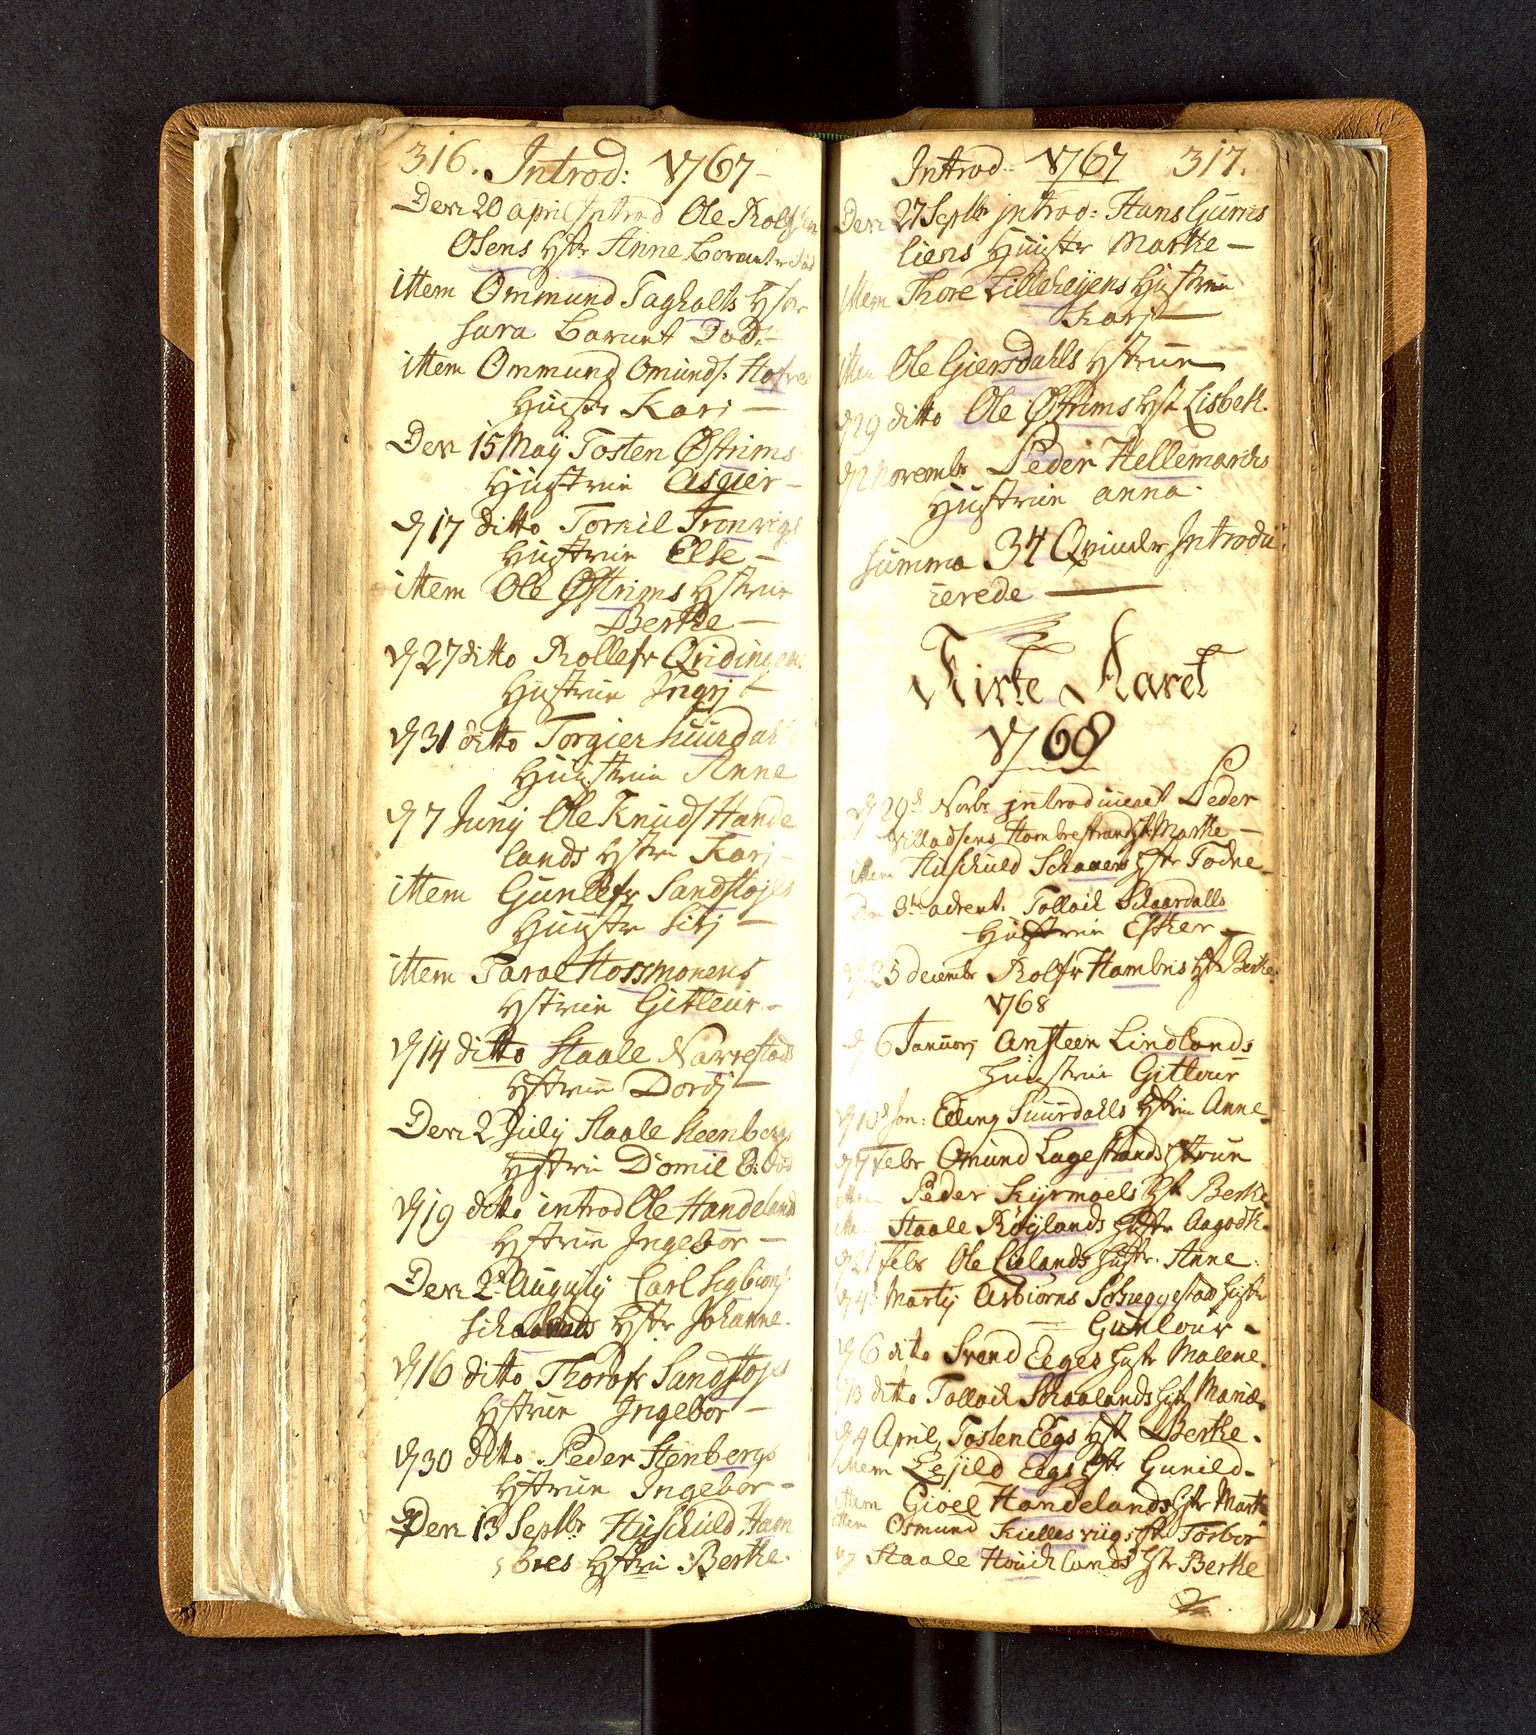 316. Introd: 1767 –
Den 20 april Introd Ole Rolfsen
Osens Hstr Anne Barnet
ittem Ommund Tagholts Hstr
Sara Barnet Død. –
ittem Ommund Omunds. Hofre
Hustr Kari –
Den 15 Maÿ Tosten Østrims
Hustrue Asgier –
d 17 ditto Torkil Tronvigs
Hustrue Else –
ittem Ole Østrims Hstrue
Berthe –
d 27 ditto Rollefr Qvidingens
Hustrue Ingrj –
d 31 ditto Torgier Suurdahls
Hustrue Anne
d 7 Junij Ole Knuds Hande
lands Hstru Karj –
ittem Gunlefr Sandstøjls
Huustr Sirj –
ittem Taral Hossmonens
Hstrue Gitteur –
d 14 ditto Staale Narrestads
Hstrue Dordj –
Den 2 Julij Staale Steenbergs
Hstru Domil B: død
d 19 ditto introd Ole Handelands
Hstrue Ingebor –
Den 2d Augustij Carl Sigbiøns
Hstr Johanne.
d 16 ditto Thorofr Sandstøjls
Hstrue Ingebor –
d 30 ditto Peder Stenbergs
Hstrue Ingebor –
Den 13 Septbr Huschuld Ham
bres Hstru Berthe.
Introd 1767 317.
Den 27 Septbr introd: Hans Gurris
liens Huustr Marthe –
ittem Thore Lilleheÿens Hustrue
Karj –
ittem Ole Giersdahls Hstrue
d 29 ditto Ole Østrims Hst Lisbeth.
d 1 Novembr Peder Hellemarchs
Hustrue anna.
Summa 34 Qvinder Introdu
cerede –
Kirke Aaret
1768
d 29d Novbr introduceret Peder
Villadsens Hambrestrands Hst Marthe –
ittem Huschuld Schaaers Hstr Todne.
Dn 3de advent. Tollach Schaardalls
Hustrue Esther –
d 25 decembr Rolfr Hambris Hstr Berthe
1768
d 6 Januarj Ansteen Lindlands
Hustrue Gitteur
d 10d Jan: Elling Suurdahls Hstru Anne –
d 7 Febr Omund Lagestrands Hstrue
ittem Peder Kyrmoels Hst Berthe
ittem Staale Røÿlands Hustr Aagodt.
d 21 febr Ole Lielands Hustr. Anne.
d 4 Martij Asbiørns Schuggestad Hustr
Gunlour –
d 6 ditto Svend Eeges Hustr Malene.
d 13 ditto Tollach Schaalands Hustr Maria.
d 4 April Tosten Eegs Hst Berthe.
ittem Lejild Eegs Hstr Gunild –
ittem Gioel Handelands Hstr Marthe
ittem Osmund Kiellesviigs Hst Torbor
d Staale Houchlands Hstr Berthe